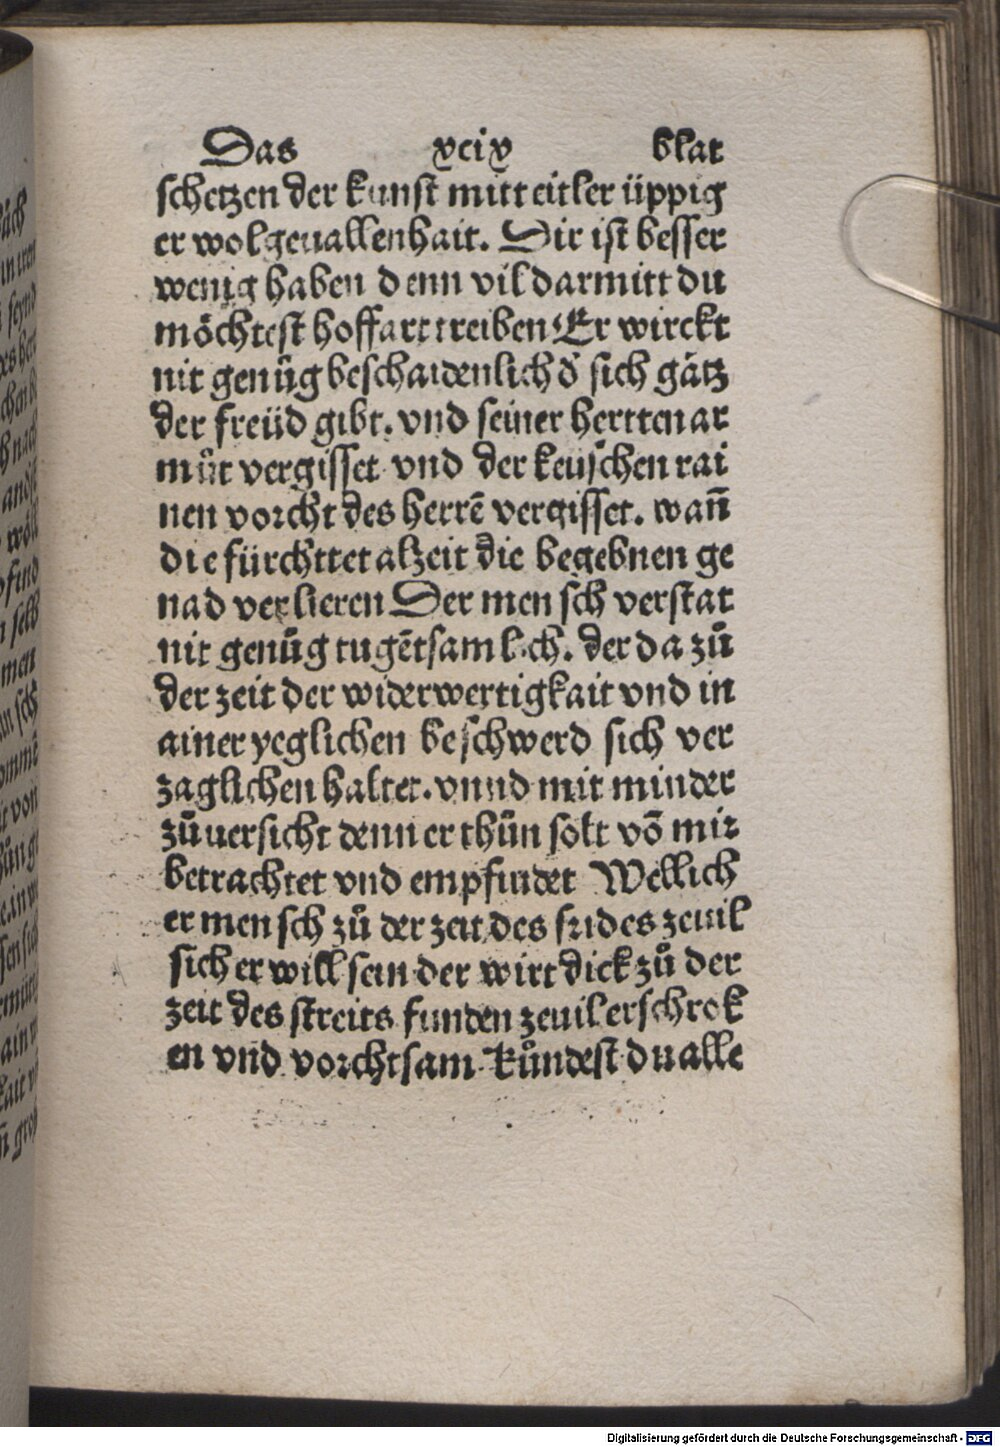 Das xcix blat
schetzen der kunst mitt eitler üppig
er wolgeuallenhait. Dir ist besser
wenig haben denn vil darmitt du
möchtest hoffart treiben Er wirckt
nit genůg beschaidenlich d̕ sich gätz
der freüd gibt. vnd seiner hertten ar
můt vergisset vnd der keuschen rai
nen vorcht des herrē vergisset. wañ
die fürchttet alzeit die begebnen ge
nad verlieren Der mensch verstat
nit genůg tugētsamlich. der da zů
der zeit der widerwertigkait vnd in
ainer yeglichen beschwerd sich ver
zaglichen haltet. vnnd mit minder
zůuersicht denn er thůn solt vō mir
betrachtet vnd empfindet Wellich
er mensch zů der zeit des frides zeuil
sicher will sein der wirt dick zů der
zeit des streits funden zeuil erschrok
en vnd vorchtsam Kůndest du alle
Digitalisierung gefördert durch die Deutsche Forschungsgemeinschaft - DFG